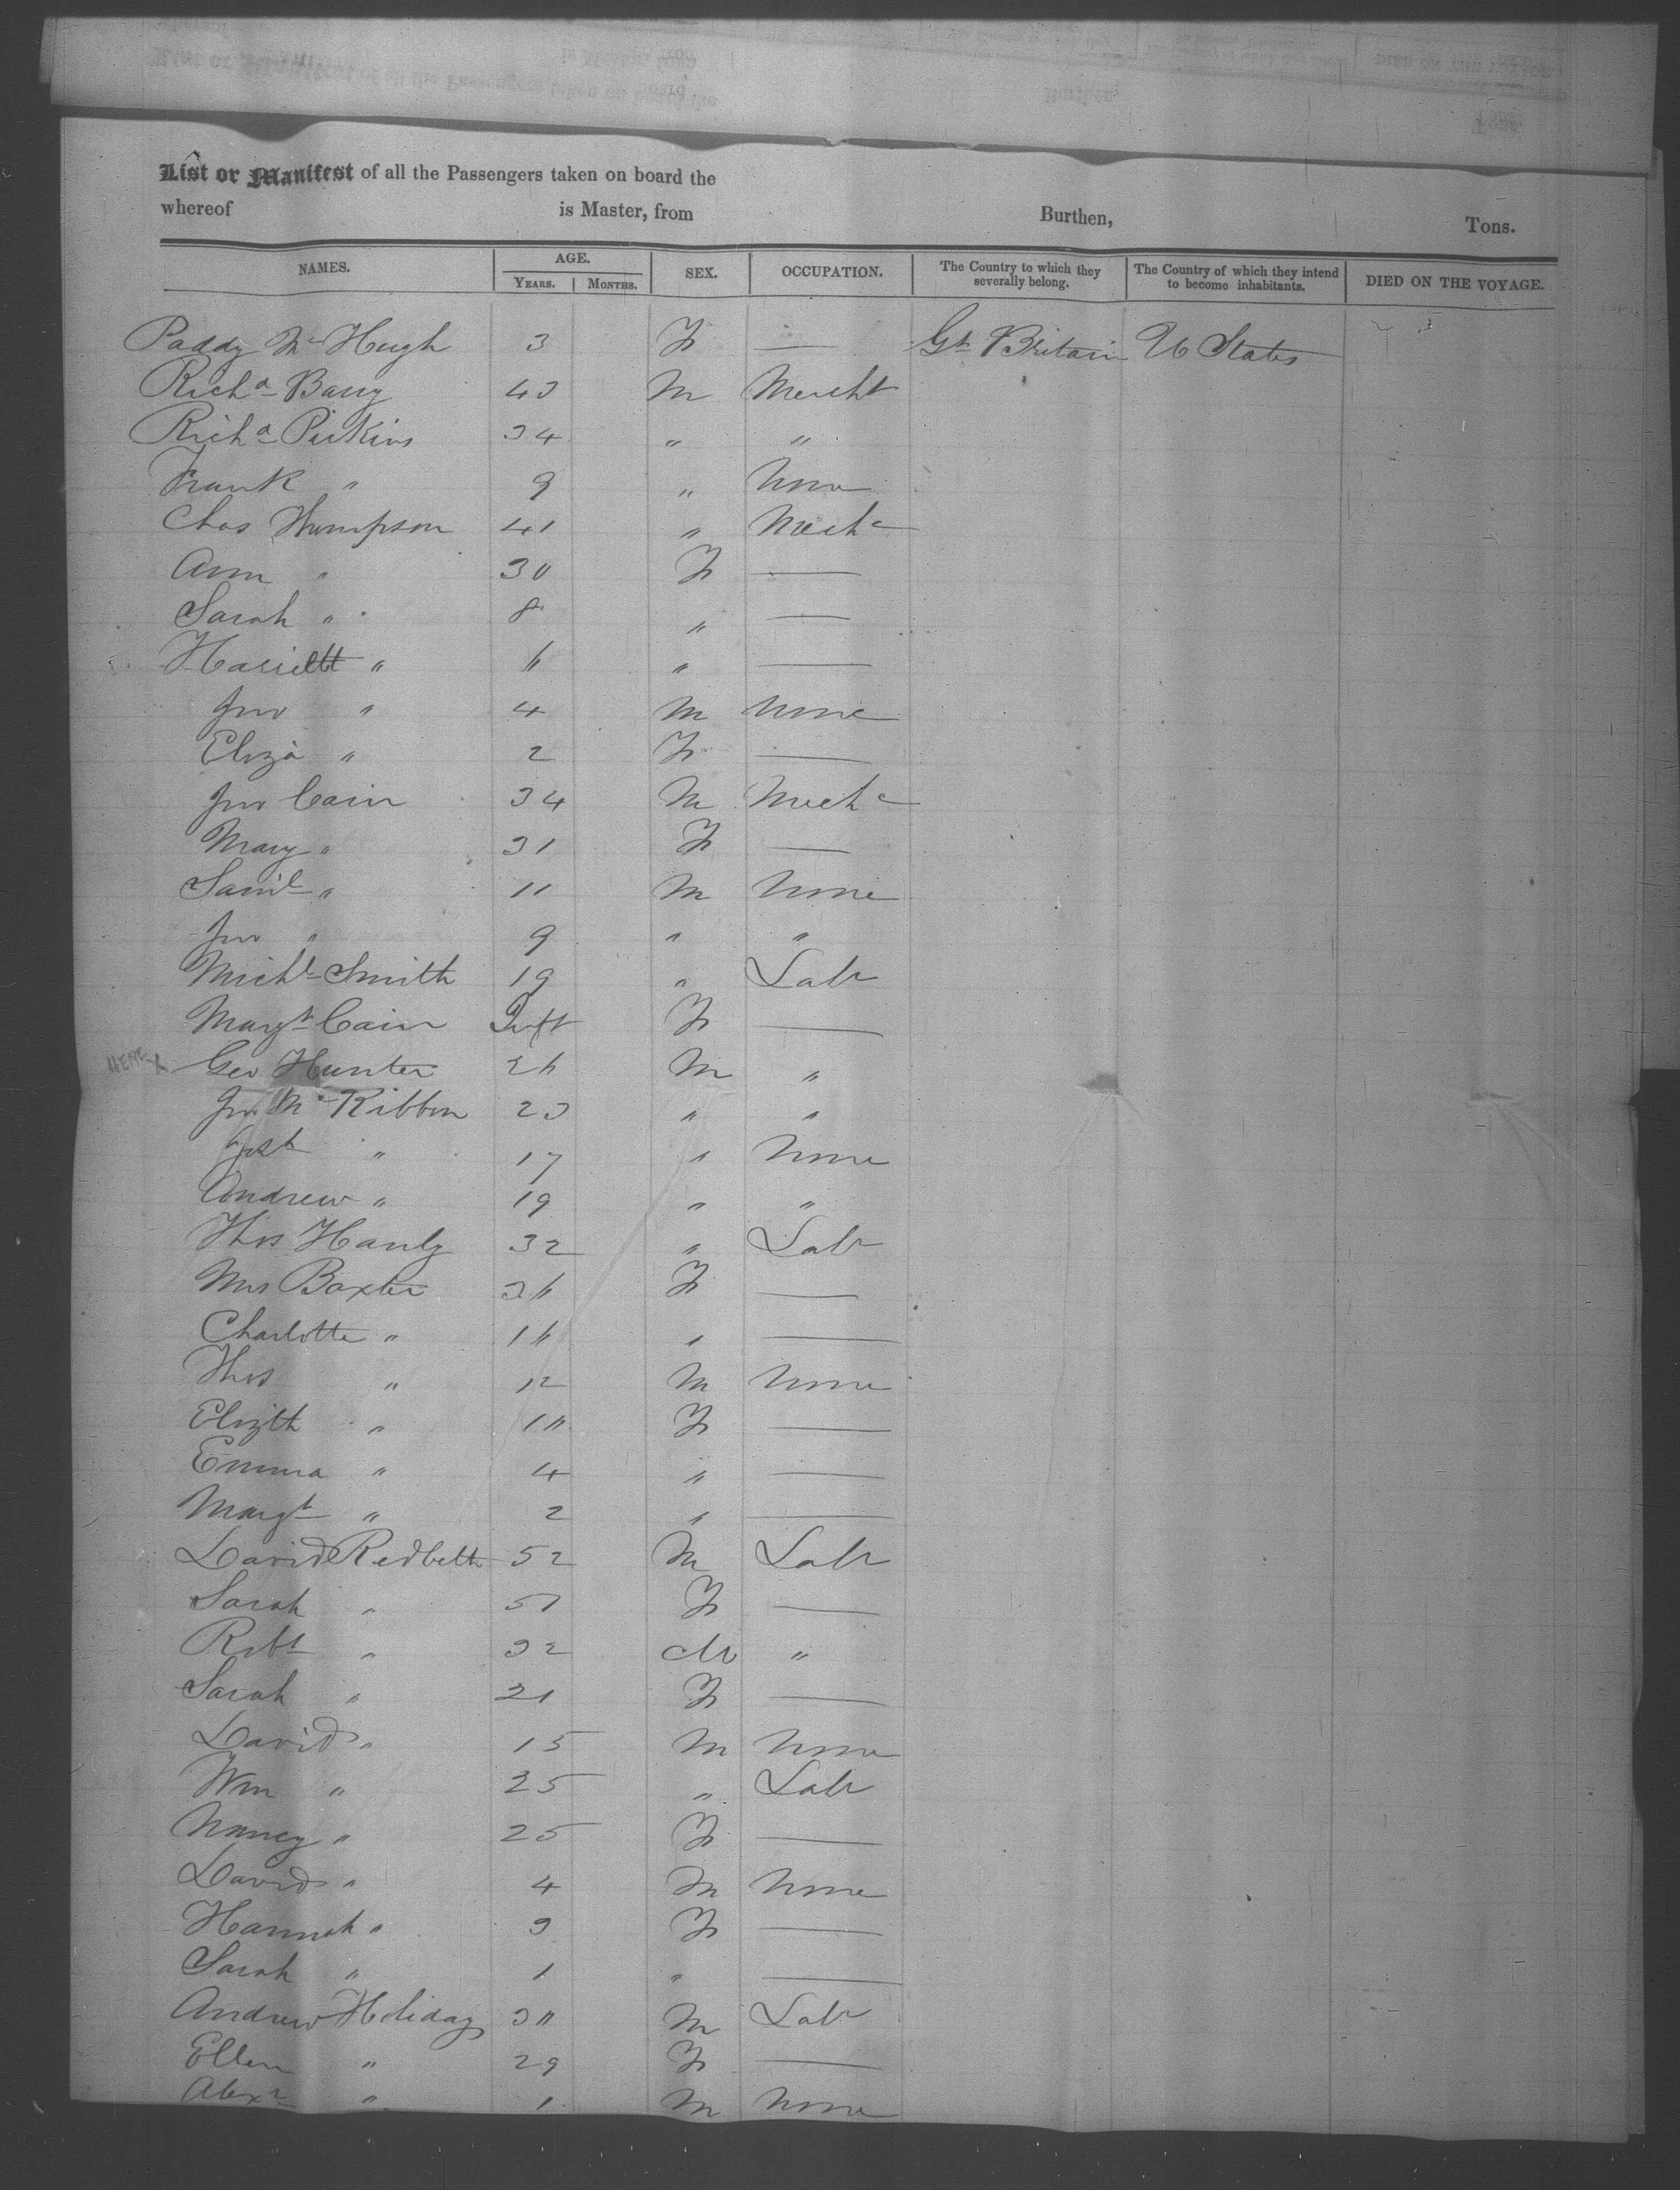 List or Manifest of all the Passengers taken on board the
whereof is Master, from Burthen, Tons.
NAMES. AGE. YEARS. MONTHS. SEX. OCCUPATION. The Country to which they severally belong. The Country of which they intend to become inhabitants. DIED ON THE VOYAGE.
Paddy Mc Hugh 3 F — Gt Britain U States
Richd Barry 43 M Mercht
Richd Perkins 34 " "
Frank " 9 " None
Chas Thompson 41 " Mechc
Ann " 30 F —
Sarah " 8 " —
Harriett " 6 " —
Jno " 4 M None
Eliza " 2 F —
Jno Cain 34 M Mechc
Mary " 31 F —
Saml " 11 M None
Jno " 9 " "
Michl Smith 19 " Labr
Margt Cain Inft F —
HERE X Geo Hunter 26 M "
Jno Mc Kibbon 23 " "
Josh " 17 " None
Andrew " 19 " "
Thos Hanly 32 " Labr
Mrs Baxter 36 F —
Charlotte " 16 " —
Thos " 12 M None
Elizth " 10 F —
Emma " 4 " —
Margt " 2 " —
David Redbelt 52 M Labr
Sarah " 51 F —
Robt " 32 M "
Sarah " 21 F —
David " 15 M None
Wm " 25 " Labr
Nancy " 25 F —
David " 4 M None
Hannah " 3 F —
Sarah " 1 " —
Andrew Holiday 30 M Labr
Ellen " 29 F —
Alexr " 1 M None